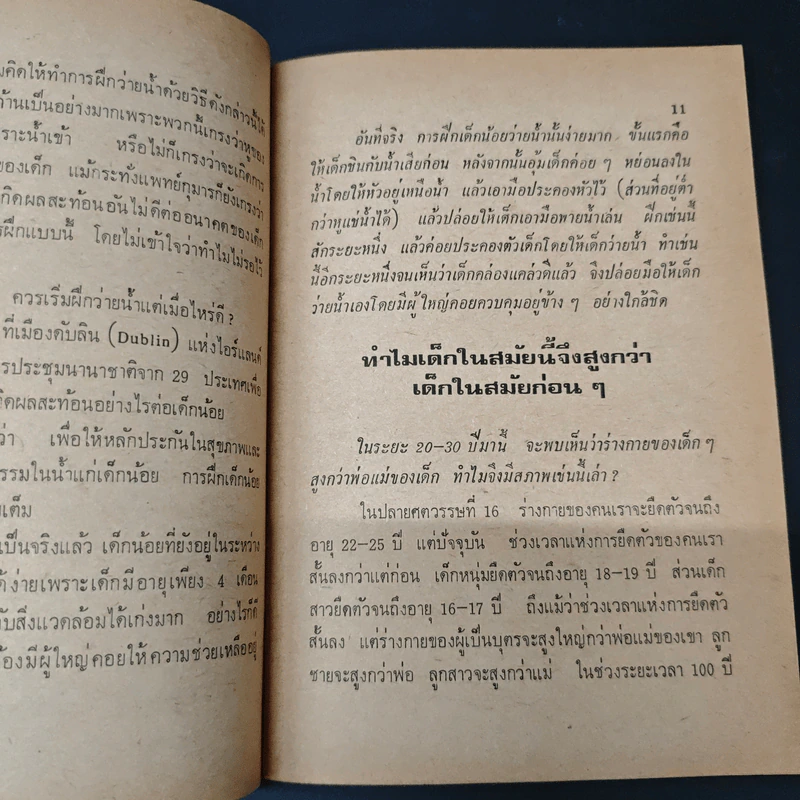 มคิดให้ทำการฝึกว่ายน้ำด้วยวิธีดังกล่าวนี้ได้
ด้านเป็นอย่างมากเพราะพวกนี้เกรงว่าหูของ
ราะน้ำเข้า หรือไม่ก็เกรงว่าจะเกิดการ
ของเด็ก แม้กระทั่งแพทย์กุมารก็ยังเกรงว่า
กิดผลสะท้อนอันไม่ดีต่ออนาคตของเด็ก
รฝึกแบบนี้ โดยไม่เข้าใจว่าทำไมไม่รอไว้
ควรเริ่มฝึกว่ายน้ำแต่เมื่อไหร่ดี ?
ที่เมืองดับลิน (Dublin) แห่งไอร์แลนด์
รประชุมนานาชาติจาก 29 ประเทศเพื่อ
กิดผลสะท้อนอย่างไรต่อเด็กน้อย
ว่า เพื่อให้หลักประกันในสุขภาพและ
รรมในน้ำแก่เด็กน้อย การฝึกเด็กน้อย
ยเต็ม
เป็นจริงแล้ว เด็กน้อยที่ยังอยู่ในระหว่าง
ด้ง่ายเพราะเด็กมีอายุเพียง 4 เดือน
กับสิ่งแวดล้อมได้เก่งมาก อย่างไรก็ดี
ต้องมีผู้ใหญ่คอยให้ความช่วยเหลืออยู่
11
อันที่จริง การฝึกเด็กน้อยว่ายน้ำนั้นง่ายมาก ขั้นแรกคือ
ให้เด็กชินกับน้ำเสียก่อน หลังจากนั้นอุ้มเด็กค่อย ๆ หย่อนลงใน
น้ำโดยให้หัวอยู่เหนือน้ำ แล้วเอามือประคองหัวไว้ (ส่วนที่อยู่ต่ำ
กว่าหูแช่น้ำได้) แล้วปล่อยให้เด็กเอามือพายน้ำเล่น ฝึกเช่นนี้
สักระยะหนึ่ง แล้วค่อยประคองตัวเด็กโดยให้เด็กว่ายน้ำ ทำเช่น
นี้อีกระยะหนึ่งจนเห็นว่าเด็กคล่องแคล่วดีแล้ว จึงปล่อยมือให้เด็ก
ว่ายน้ำเองโดยมีผู้ใหญ่คอยควบคุมอยู่ข้าง ๆ อย่างใกล้ชิด
ทำไมเด็กในสมัยนี้จึงสูงกว่า
เด็กในสมัยก่อน ๆ
ในระยะ 20–30 ปีมานี้ จะพบเห็นว่าร่างกายของเด็ก ๆ
สูงกว่าพ่อแม่ของเด็ก ทำไมจึงมีสภาพเช่นนี้เล่า ?
ในปลายศตวรรษที่ 16 ร่างกายของคนเราจะยืดตัวจนถึง
อายุ 22–25 ปี แต่ปัจจุบัน ช่วงเวลาแห่งการยืดตัวของคนเรา
สั้นลงกว่าแต่ก่อน เด็กหนุ่มยืดตัวจนถึงอายุ 18–19 ปี ส่วนเด็ก
สาวยืดตัวจนถึงอายุ 16–17 ปี ถึงแม้ว่าช่วงเวลาแห่งการยืดตัว
สั้นลง แต่ร่างกายของผู้เป็นบุตรจะสูงใหญ่กว่าพ่อแม่ของเขา ลูก
ชายจะสูงกว่าพ่อ ลูกสาวจะสูงกว่าแม่ ในช่วงระยะเวลา 100 ปี